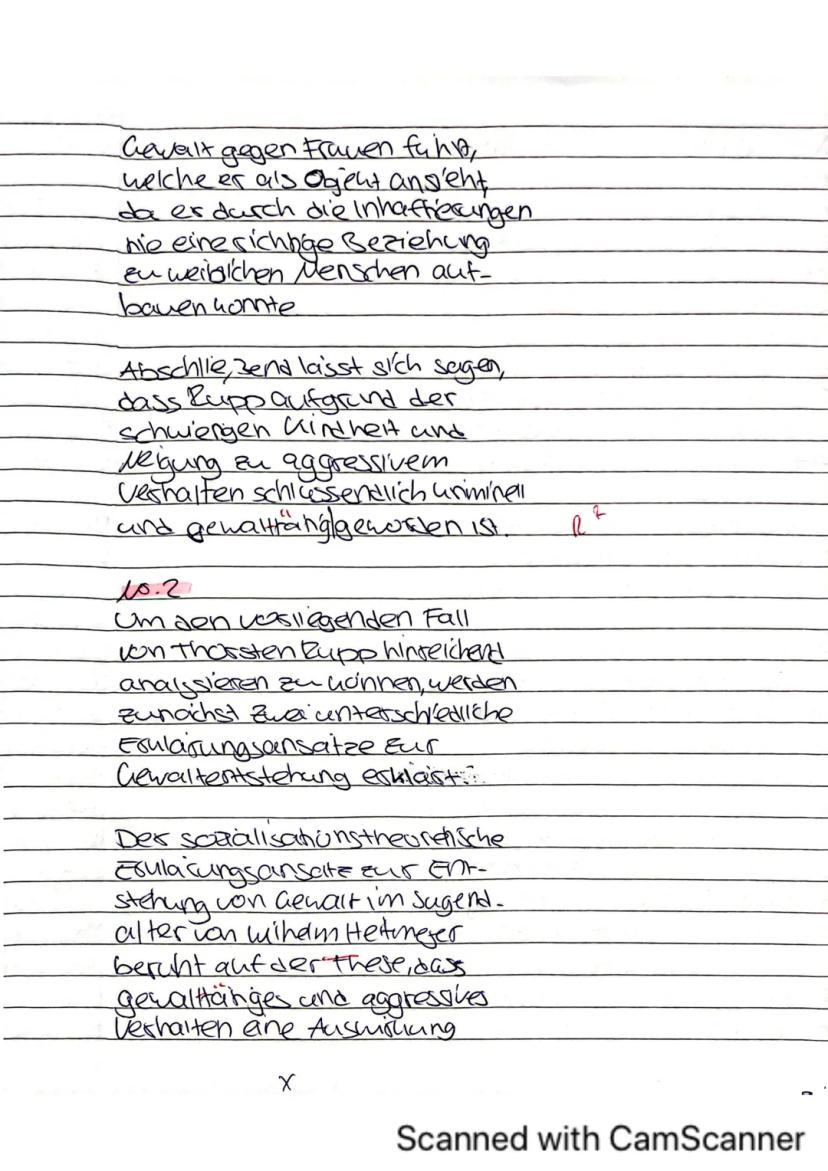 Gewalt gegen Frauen führt,
welche er als Objekt ansieht,
da er durch die Inhaftierungen
nie eine richtige Beziehung
zu weiblichen Menschen auf-
bauen konnte
Abschließend lässt sich sagen,
dass Rupp aufgrund der
schwiergen Kindheit und
Neigung zu aggressivem
Verhalten schlussendlich kriminell
und gewalttätig geworden ist. R
No.2
Um den vorliegenden Fall
von Thorsten Rupp hinreichend
analysieren zu können, werden
zunächst zwei unterschiedliche
Erklärungsansätze zur
Gewaltentstehung erklärt.
Der sozialisationstheoretische
Erklärungsansatz zur Ent-
stehung von Gewalt im Jugend-
alter von Wilhelm Heitmeyer
beruht auf der These, dass
gewalttätiges und aggressives
Verhalten eine Auswirkung
X
Scanned with CamScanner